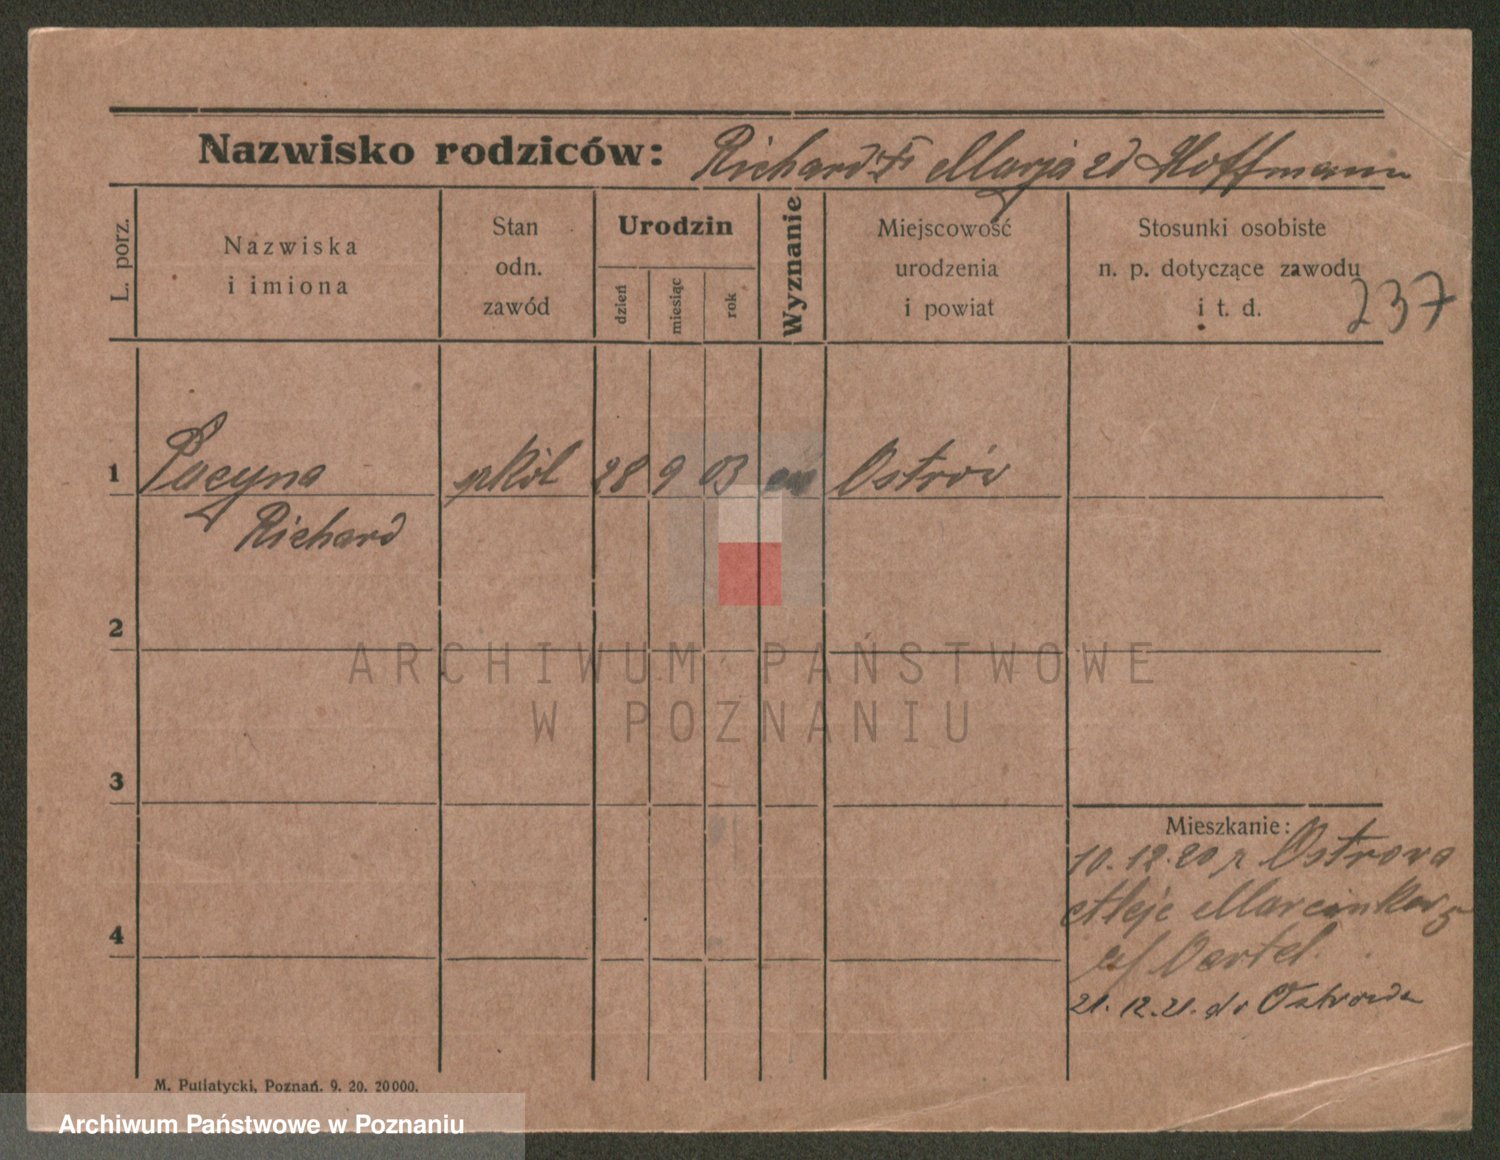 Nazwisko rodziców: Richard Marja zd Hoffmann
L. porz.
Nazwiska
i imiona
Stan
odn.
zawód
Urodzin
dzień
miesiąc
rok
Wyznanie
Miejscowość
urodzenia
i powiat
Stosunki osobiste
n. p. dotyczące zawodu
i t. d.
237
1 Pacyna 28 9 03 Ostrów
Richard
2
ARCHIWUM PAŃSTWOWE
W POZNANIU
3
Mieszkanie:
10.12.20 z Ostrowa
Aleje Marcinkow 5
Oertel
21.12.21. do Ostrowa
4
M. Putiatycki, Poznań. 9. 20. 20000.
Archiwum Państwowe w Poznaniu